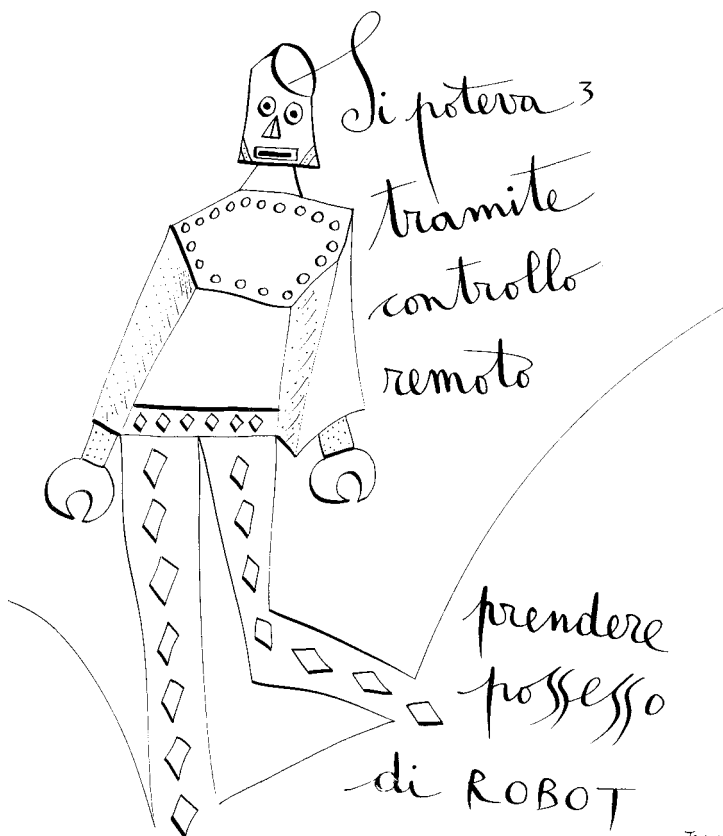 Si poteva 3
tramite
controllo
remoto
prendere
possesso
di ROBOT